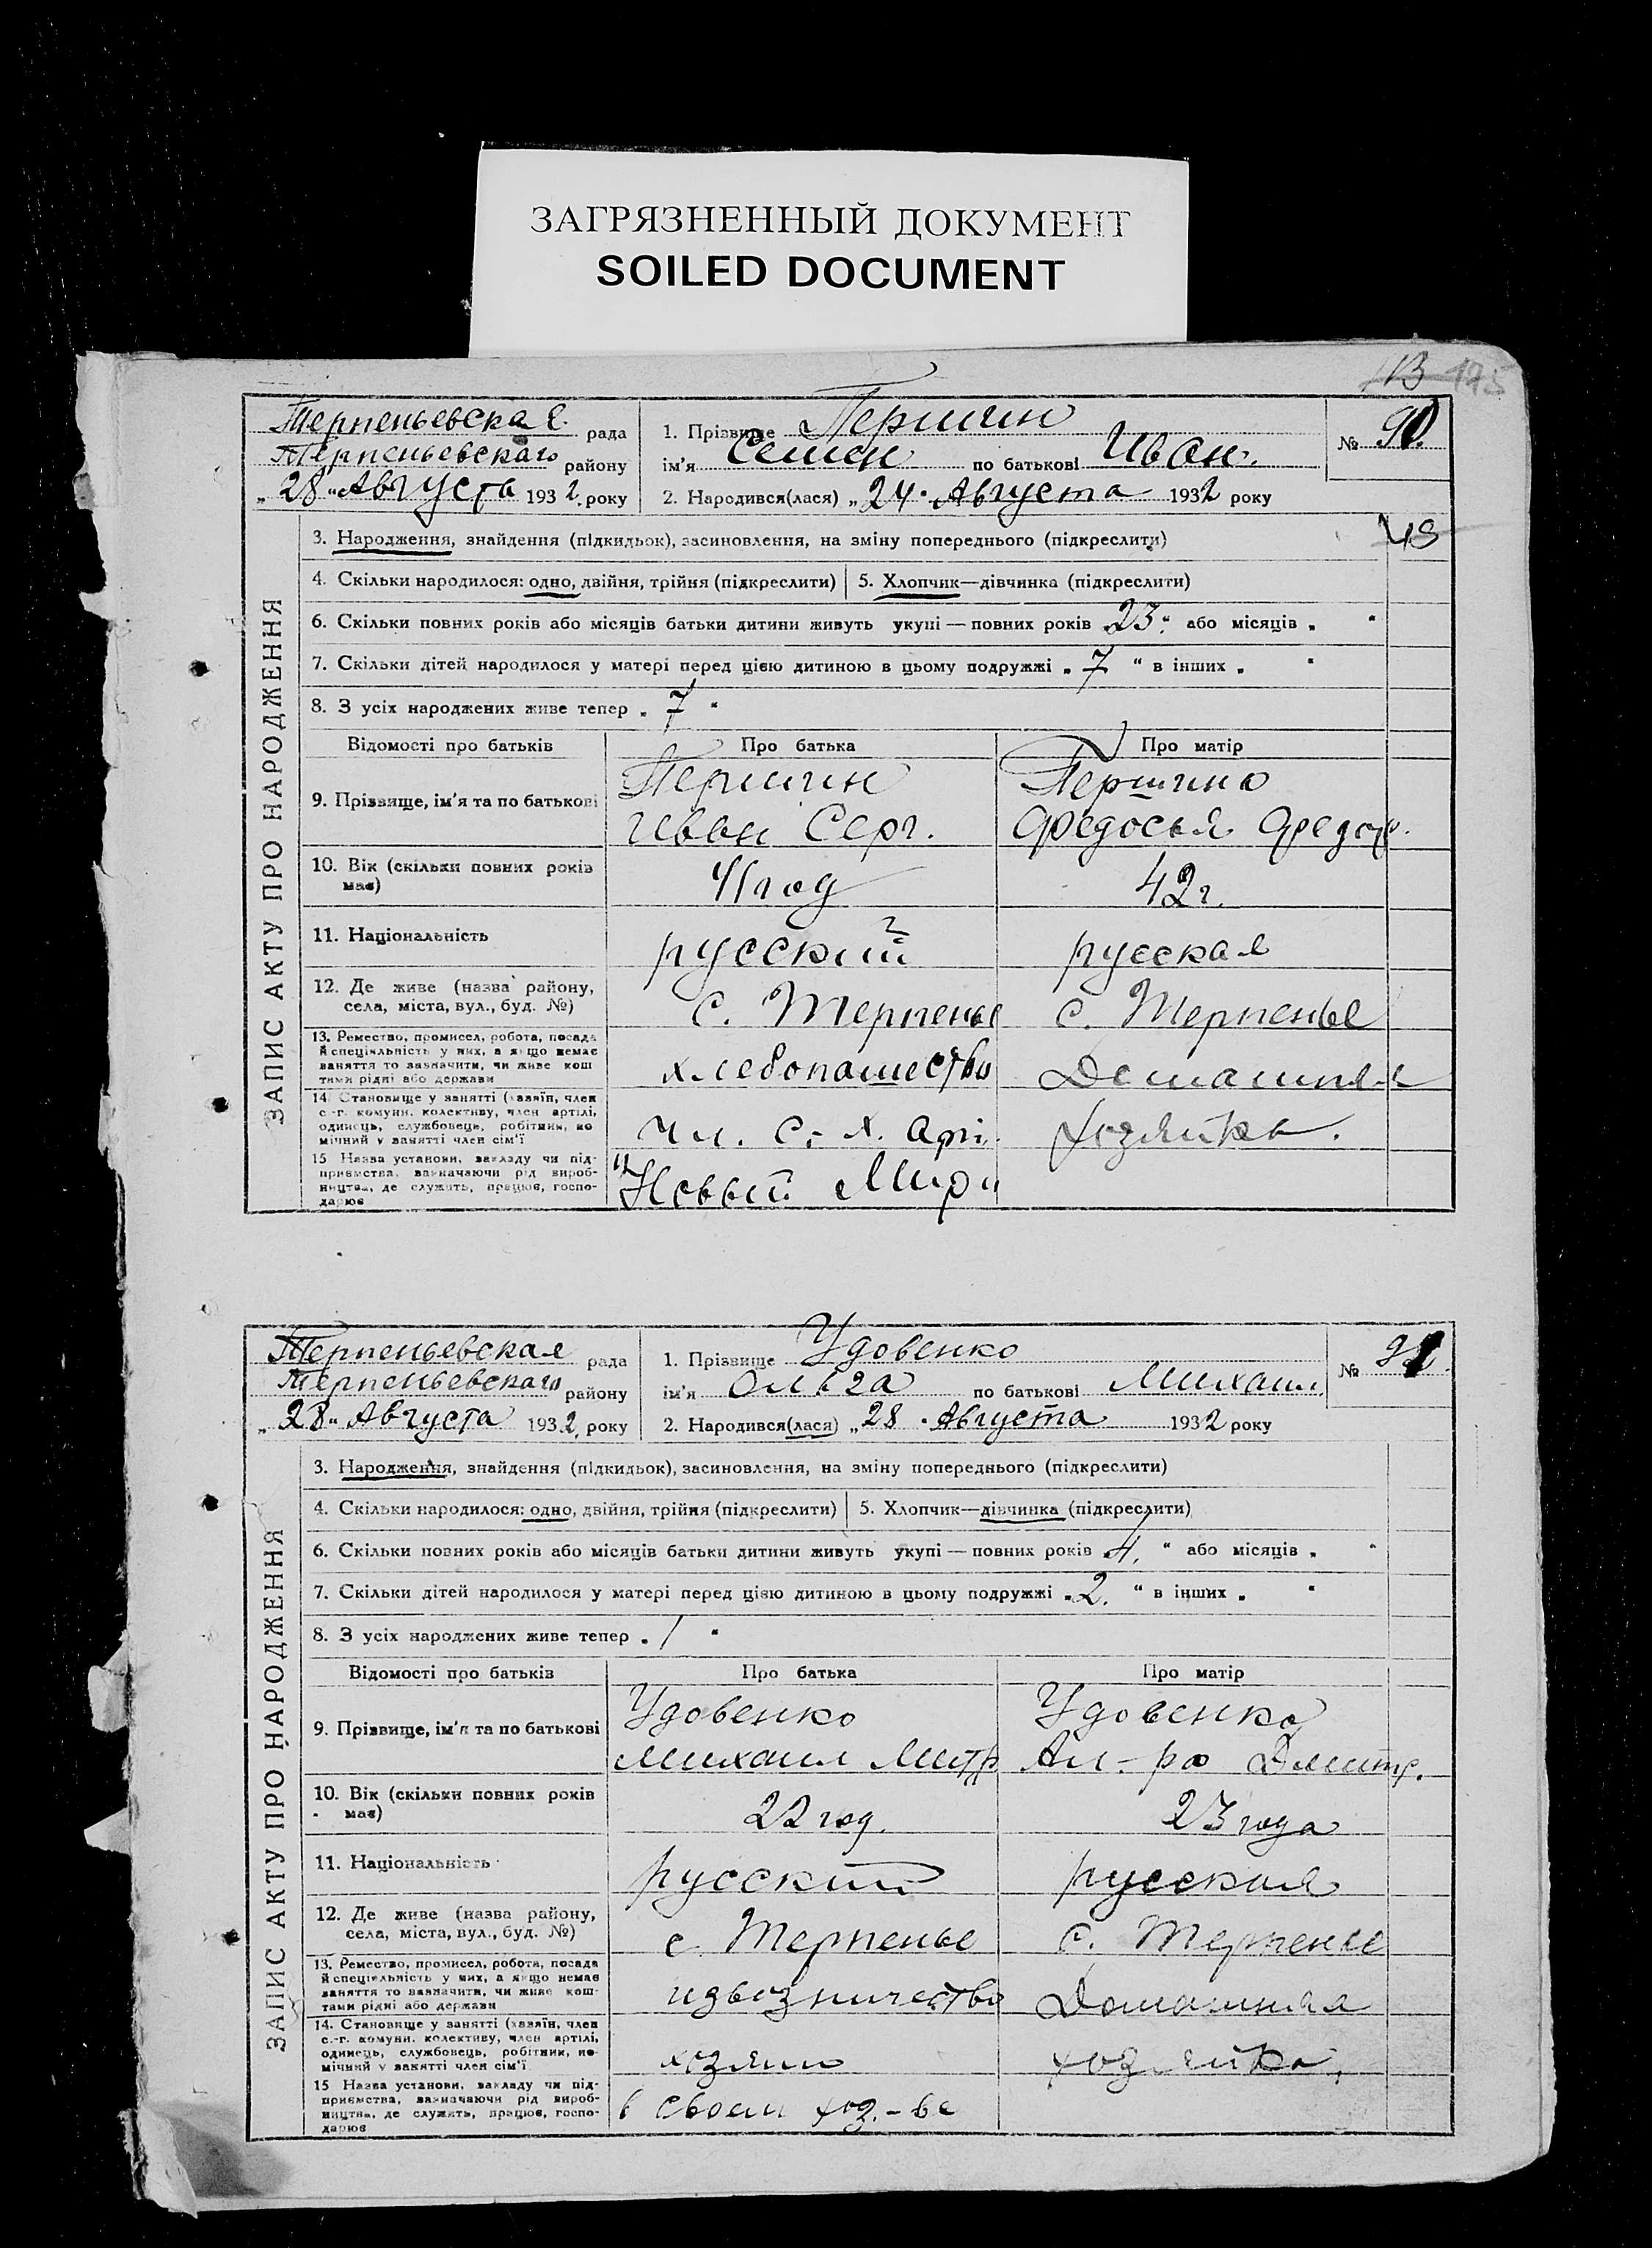 ЗАГРЯЗНЕННЫЙ ДОКУМЕНТ
SOILED DOCUMENT
113 175
Терпеньевская рада
Терпеньевскаго району
„28“ Августа 1932 року
1. Прізвище Першин
ім'я Семен по батькові Иван.
2. Народився(лася) „24“ Августа 1932 року
№ 90.
43
ЗАПИС АКТУ ПРО НАРОДЖЕННЯ
3. Народження, знайдення (підкидьок), засиновлення, на зміну попереднього (підкреслити)
4. Скільки народилося: одно, двійня, трійня (підкреслити) 5. Хлопчик—дівчинка (підкреслити)
6. Скільки повних років або місяців батьки дитини живуть укупі — повних років „23“ або місяців „ “
7. Скільки дітей народилося у матері перед цією дитиною в цьому подружжі „7“ в інших „ “
8. З усіх народжених живе тепер „7“
Відомості про батьків Про батька Про матір
9. Прізвище, ім'я та по батькові
Першин Першина
Иван Серг. Федосья Федор.
10. Вік (скільки повних років має)
41 год 42 г.
11. Національність
русский русская
12. Де живе (назва району, села, міста, вул., буд. №)
с. Терпенье с. Терпенье
13. Ремество, промисел, робота, посада
й спеціяльність у них, а якщо немає
заняття то зазначити, чи живе кош
тами рідні або держави
хлебопашество Домашняя
14. Становище у занятті (хазяїн, член
с.-г. комуни, колективу, член артілі,
одинець, службовець, робітник, по
мічний у занятті член сім'ї
Чл. С. Х. Арт. хозяйка.
15 Назва установи, закладу чи під-
приємства, зазначаючи рід вироб-
ництва, де служить, працює, госпо-
дарює
"Новый Мир"
Терпеньевская рада
Терпеньевскаго району
„28“ Августа 1932 року
1. Прізвище Удовенко
ім'я Ольга по батькові Михаил.
2. Народився(лася) „28“ Августа 1932 року
№ 91.
ЗАПИС АКТУ ПРО НАРОДЖЕННЯ
3. Народження, знайдення (підкидьок), засиновлення, на зміну попереднього (підкреслити)
4. Скільки народилося: одно, двійня, трійня (підкреслити) 5. Хлопчик—дівчинка (підкреслити)
6. Скільки повних років або місяців батьки дитини живуть укупі — повних років „4.“ або місяців „ “
7. Скільки дітей народилося у матері перед цією дитиною в цьому подружжі „2.“ в інших „ “
8. З усіх народжених живе тепер „1“
Відомості про батьків Про батька Про матір
9. Прізвище, ім'я та по батькові
Удовенко Удовенко
Михаил Митр Ал-ра Дмитр.
10. Вік (скільки повних років має)
22 год. 23 года
11. Національність
русский русская
12. Де живе (назва району, села, міста, вул., буд. №)
с. Терпенье с. Терпенье
13. Ремество, промисел, робота, посада
й спеціяльність у них, а якщо немає
заняття то зазначити, чи живе кош-
тами рідні або держави
извозничество Домашняя
14. Становище у занятті (хазяїн, член
с.-г. комуни, колективу, член артілі,
одинець, службовець, робітник, по-
мічний у занятті член сім'ї
хозяин хозяйка.
15 Назва установи, закладу чи під-
приємства, зазначаючи рід вироб-
ництва, де служить, працює, госпо-
дарює
в своем хоз.-ве